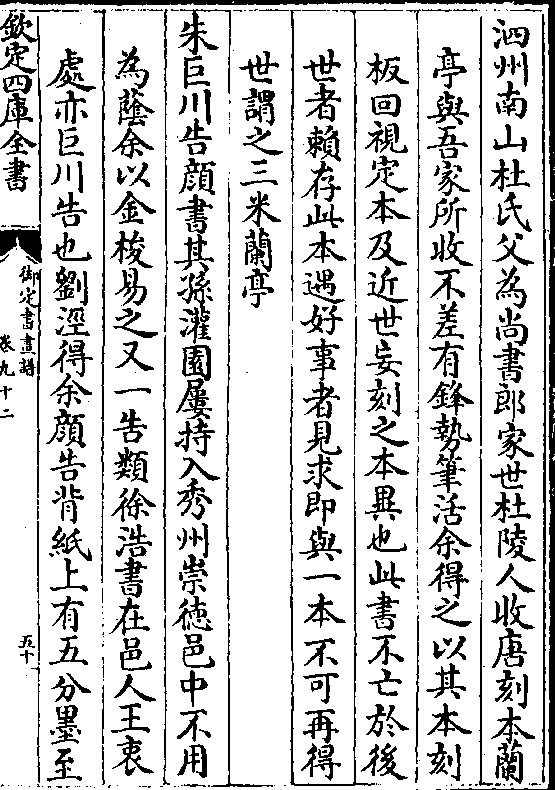 泗州南山杜氏父為尚書郎家世杜陵人收唐刻本蘭
亭與吾家所收不差有鋒勢筆活余得之以其本刻
板回視定本及近世妄刻之本異也此書不亡於後
世者賴存此本遇好事者見求即與一本不可再得
世謂之三米蘭亭
朱巨川告顔書其孫灌園屢持入秀州崇徳邑中不用
為蔭余以金梭易之又一告類徐浩書在邑人王衷
處亦巨川告也劉涇得余顔告背紙上有五分墨至
欽定四庫全書
御定書畫譜
卷九十二
五十